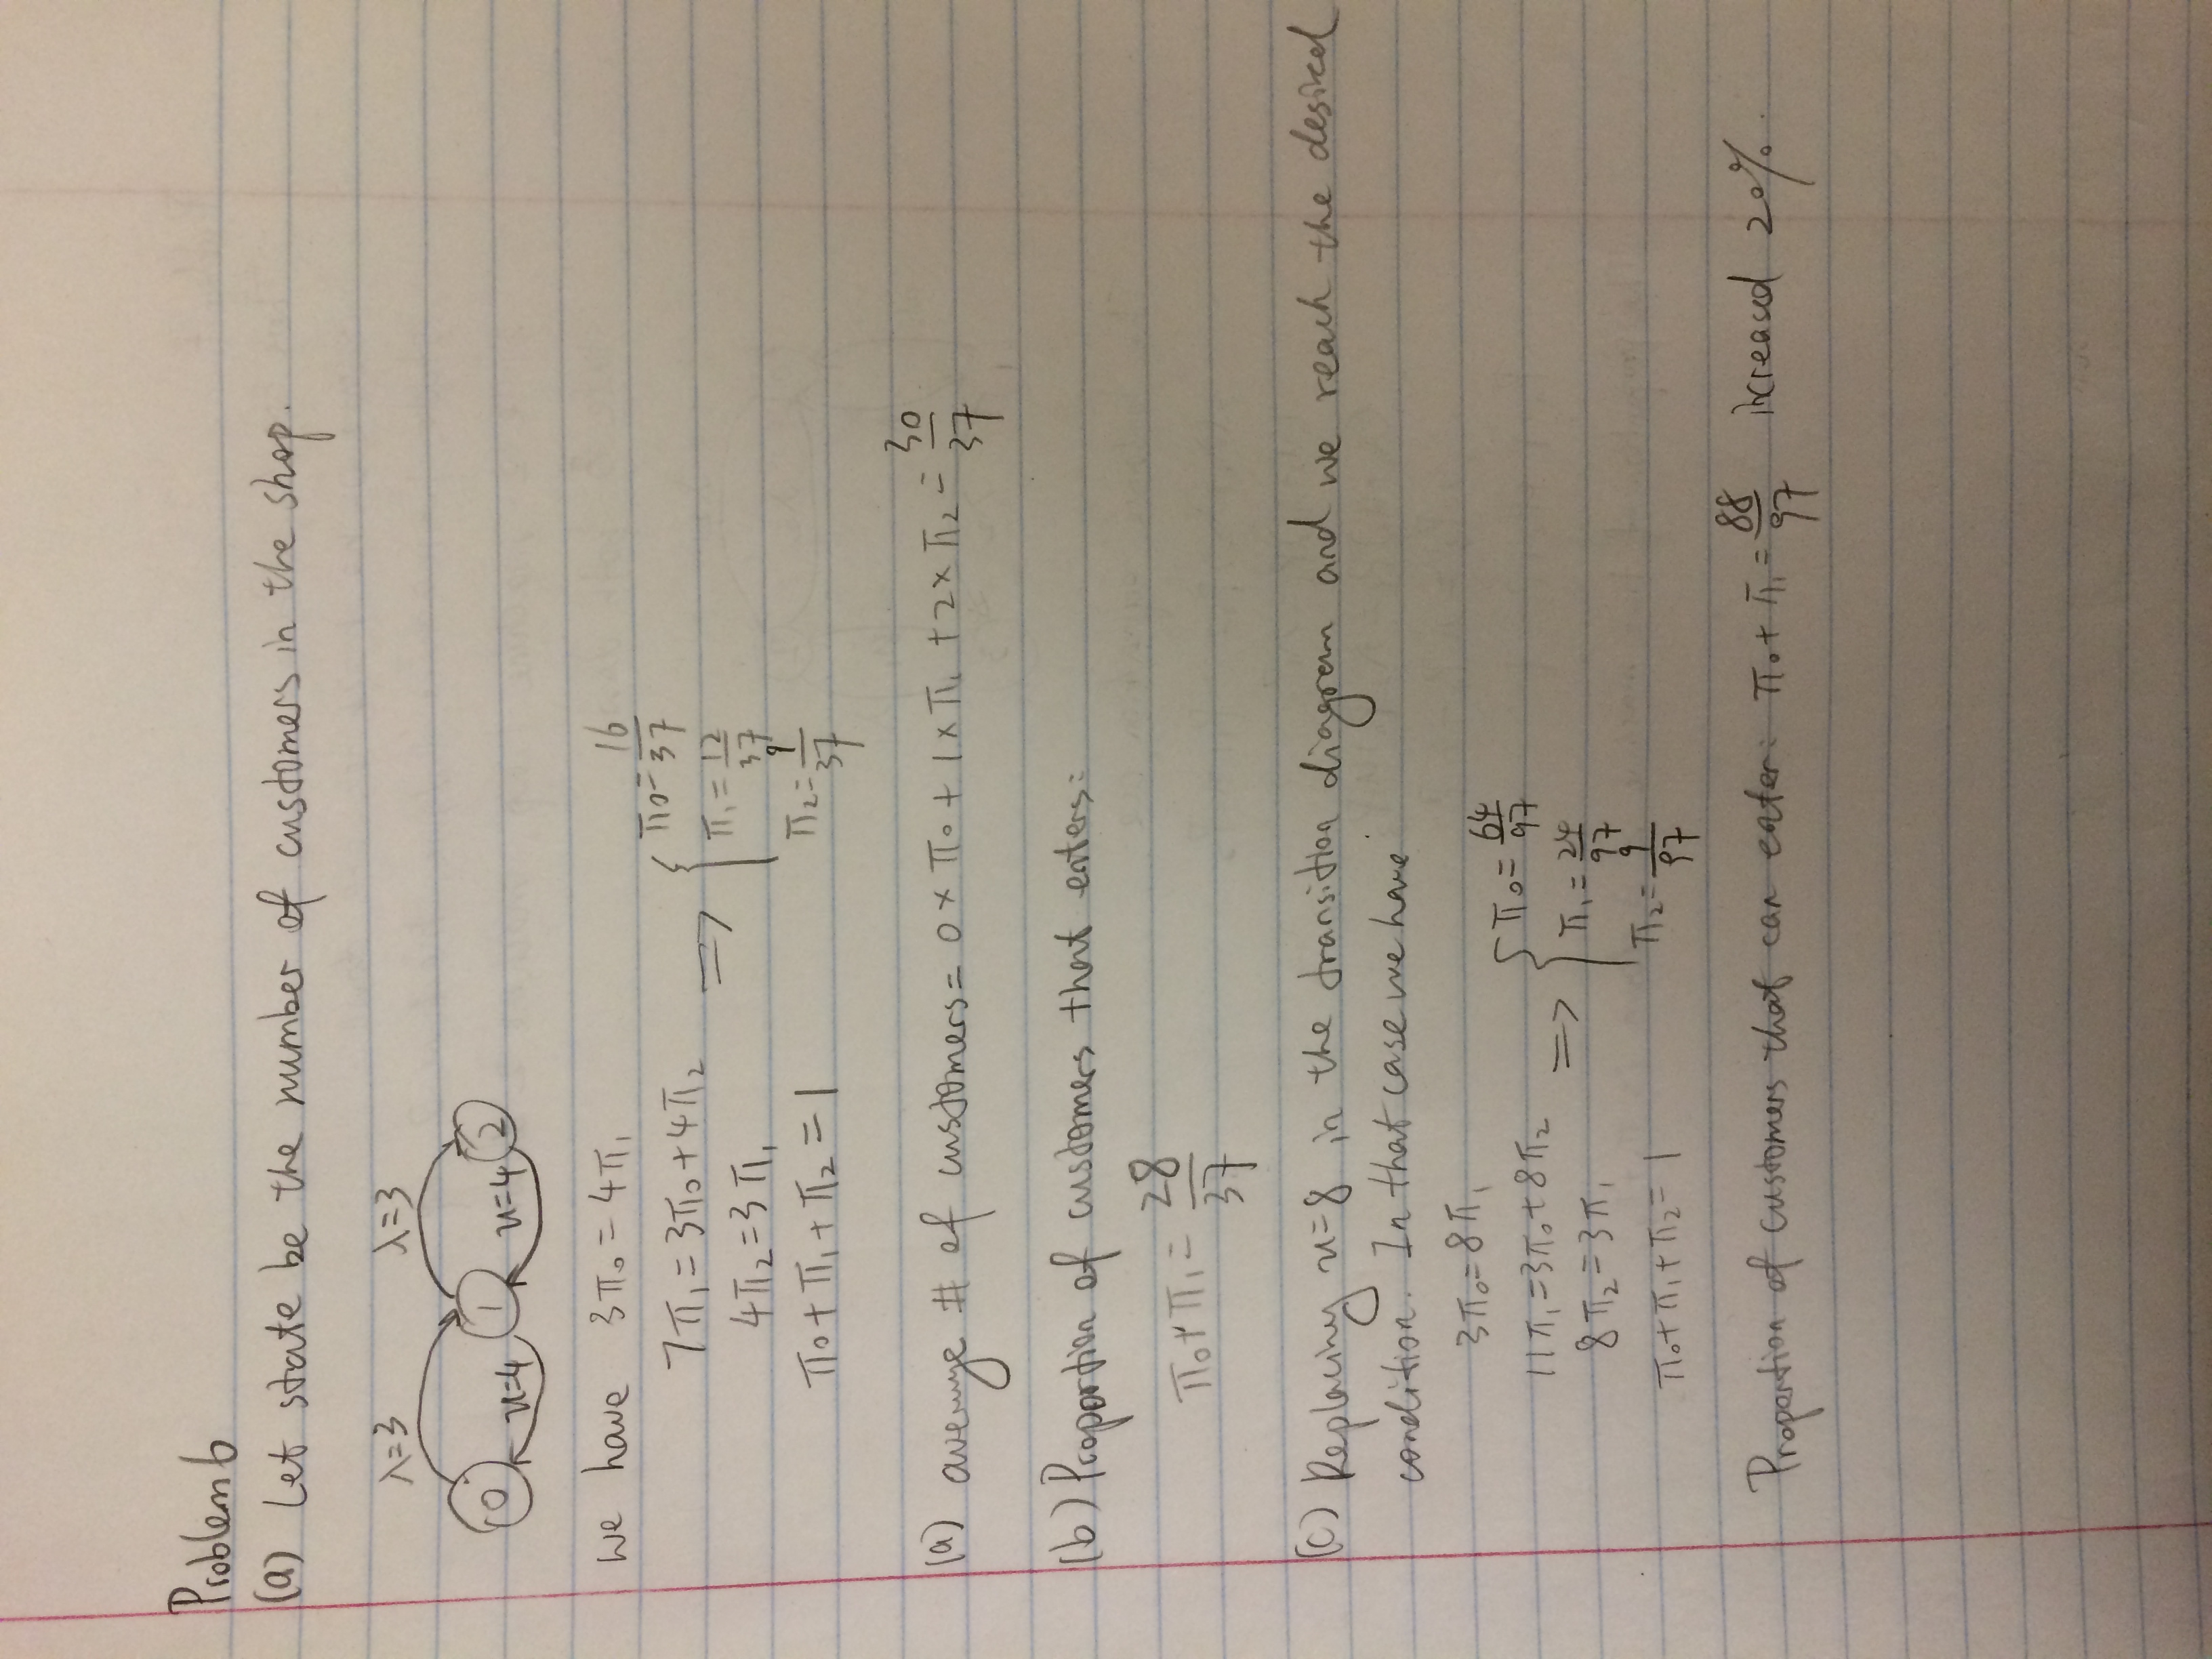 Problem 6
(a) Let state be the number of customers in the shop.
λ=3 λ=3
0 u=4 1 u=4 2
we have 3π₀ = 4π₁
7π₁ = 3π₀ + 4π₂
4π₂ = 3π₁
π₀ + π₁ + π₂ = 1
⇒ { π₀ = 16/37
π₁ = 12/37
π₂ = 9/37
(a) average # of customers = 0 × π₀ + 1 × π₁ + 2 × π₂ = 30/37
(b) Proportion of customers that enters:
π₀ + π₁ = 28/37
(c) Replacing u=8 in the transition diagram and we reach the desired
condition. In that case we have
3π₀ = 8π₁
11π₁ = 3π₀ + 8π₂
8π₂ = 3π₁
π₀ + π₁ + π₂ = 1
⇒ { π₀ = 64/97
π₁ = 24/97
π₂ = 9/97
Proportion of customers that can enter: π₀ + π₁ = 88/97 increased 20%.